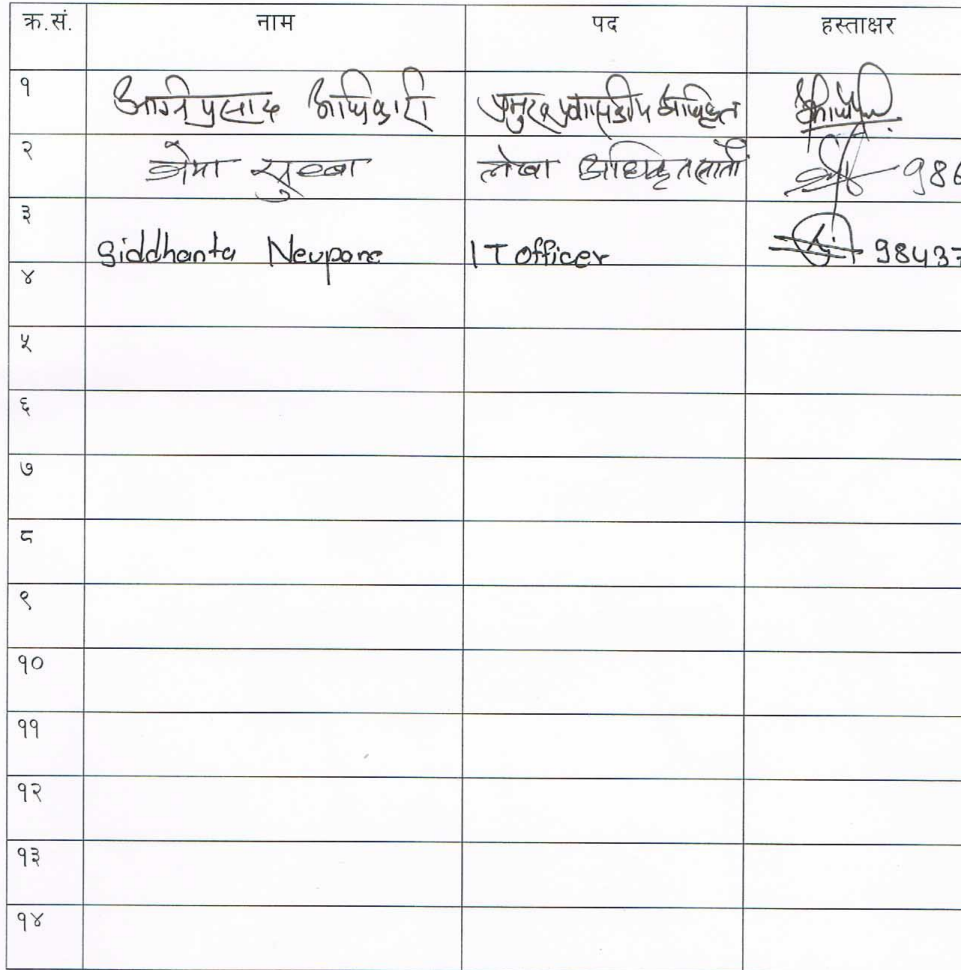 क्र.सं. नाम पद हस्ताक्षर
१ अग्नि प्रसाद अधिकारी प्रमुख प्रशासकीय अधिकृत
२ सुब्बा लेखा अधिकृत सातौं 986
३ Siddhanta Neupane IT officer 98437
४
५
६
७
८
९
१०
११
१२
१३
१४